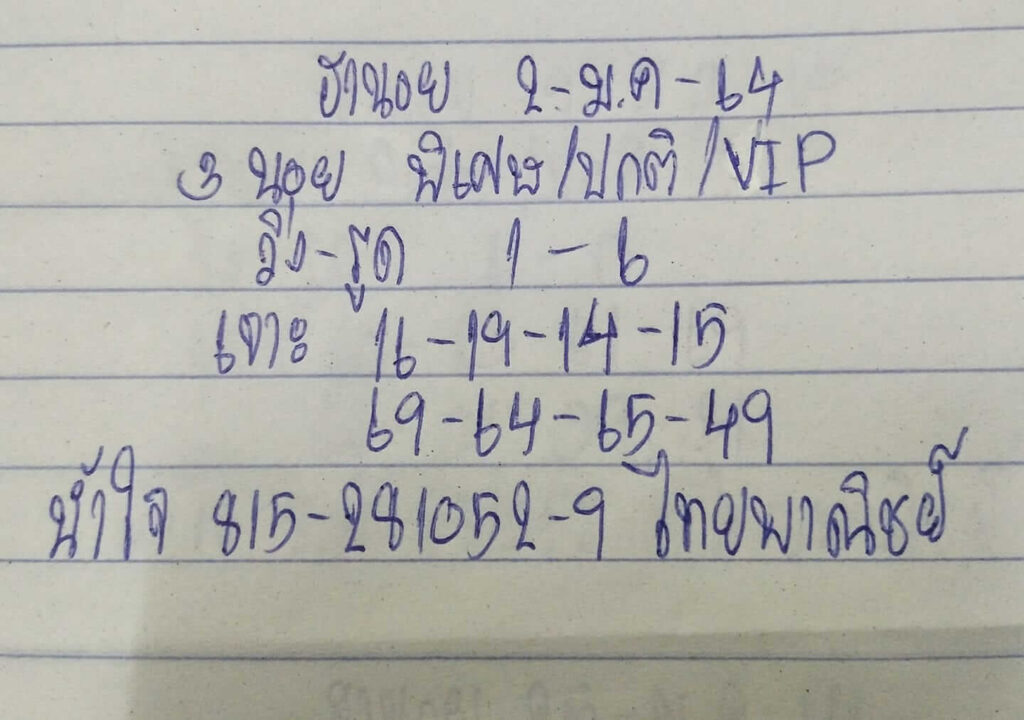 ฮานอย 2-ม.ค-64
3 นอย พิเศษ/ปกติ/VIP
วิ่ง-รูด 1-6
เจาะ 16-19-14-15
69-64-65-49
น้ำใจ 815-281052-9 ไทยพาณิชย์